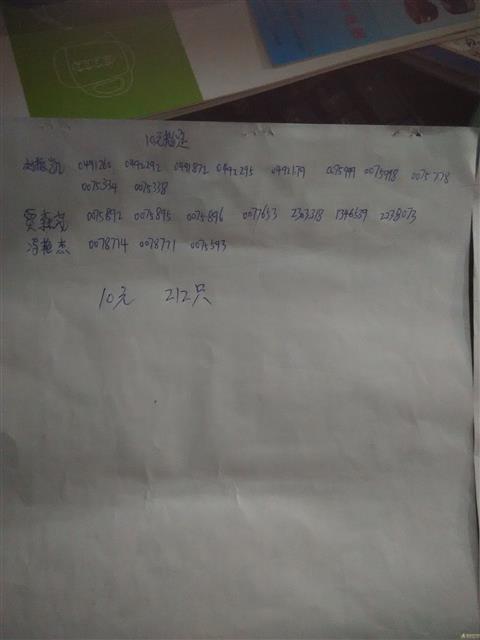 10元指定
0491260 0492292 0491872 0492295 0492179 0075999 0075998 0075778
0075334 0075338
贾森克 0075892 0075895 0075896 0077653 2303318 1346539 2238073
冯艳杰 0078714 0078771 0075593
10元 212只